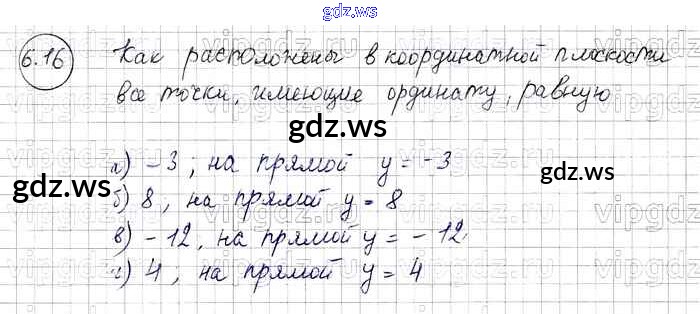 gdz.ws
6.16 Как расположены в координатной плоскости
все точки, имеющие ординату, равную
gdz.ws
а) -3; на прямой y = -3
gdz.ws
gdz.ws
б) 8, на прямой y = 8
в) -12, на прямой y = -12
г) 4, на прямой y = 4
gdz.ws